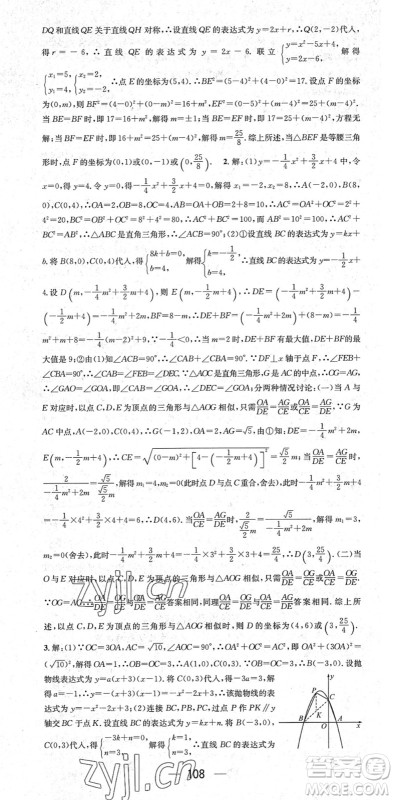 DQ和直线QE关于直线QH对称,∴设直线QE的表达式为y=2x+r,∴Q(2,-2)代入,
得r=-6,∴直线QE的表达式为y=2x-6.联立{y=x²-5x+4, y=2x-6, 解得
{x₁=5, y₁=4, {x₂=2, y₂=-2. ∴点E的坐标为(5,4).∴BE²=(4-0)²+(5-4)²=17.设点F的坐标
为(0,m),则BF²=(4-0)²+(0-m)²=16+m²,EF²=(0-5)²+(m-4)²=25+(m-4)².
当BE=BF时,即17=16+m²,解得m=±1;当BE=EF时,即17=25+(m-4)²,方程无
解;当BF=EF时,即16+m²=25+(m-4)²,解得m=25/8.综上所述,当△BEF是等腰三角
形时,点F的坐标为(0,1)或(0,-1)或(0,25/8). 2.解:(1)y=-1/4x²+3/2x+4中,令
x=0,得y=4.令y=0,得-1/4x²+3/2x+4=0,解得x₁=-2,x₂=8.∴A(-2,0),B(8,
0),C(0,4).∴OA=2,OB=8,OC=4,AB=OA+OB=2+8=10.∴AC²=OA²+OC²=2²+
4²=20,BC²=OB²+OC²=8²+4²=80.∴AC²+BC²=100.而AB²=10²=100,∴AC²+
BC²=AB².∴△ABC是直角三角形,且∠ACB=90°;(2)①设直线BC的表达式为y=kx+
b.将B(8,0),C(0,4)代入,得{8k+b=0, b=4, 解得{k=-1/2, b=4. ∴直线BC的表达式为y=-1/2x+
4.设D(m,-1/4m²+3/2m+4),则E(m,-1/2m+4).∴DE=(-1/4m²+3/2m+4)-
(-1/2m+4)=-1/4m²+2m,BF=8-m.∴DE+BF=(-1/4m²+2m)+(8-m)=-1/4
m²+m+8=-1/4(m-2)²+9.∵-1/4<0,∴当m=2时,DE+BF有最大值,DE+BF的最
大值是9;②由(1)知∠ACB=90°,∴∠CAB+∠CBA=90°.∵DF⊥x轴于点F,∴∠FEB+
∠CBA=90°.∴∠CAB=∠FEB=∠DEC.∵△ABC是直角三角形,G为AC中点,∴OG=AG.
∴∠GAO=∠GOA,即∠CAB=∠GOA.∴∠DEC=∠GOA;分两种情况讨论:(一)当A与
E对应时,以点C,D,E为顶点的三角形与△AOG相似,只需OA/DE=AG/CE或OA/CE=AG/DE.∵G为
AC中点,A(-2,0),C(0,4),∴G(-1,2),OA=2,AG=√5.由①知:DE=-1/4m²+2m,
E(m,-1/2m+4).∴CE=√((0-m)²+[4-(-1/2m+4)]²)=√5/2m.当OA/DE=AG/CE时,
2/(-1/4m²+2m)=√5/(√5/2 m),解得m₁=4,m₂=0(此时点D与点C重合,舍去);此时-1/4m²+3/2m+4
=-1/4×4²+3/2×4+4=6,∴D(4,6).当OA/CE=AG/DE时,2/(√5/2 m)=√5/(-1/4m²+2m),解得m₁=3,
m₂=0(舍去),此时-1/4m²+3/2m+4=-1/4×3²+3/2×3+4=25/4.∴D(3,25/4).(二)当
O与E对应时,以点C,D,E为顶点的三角形与△AOG相似,只需OA/DE=OG/CE或OA/CE=OG/DE.
∵OG=AG,∴OA/DE=OG/CE与OA/DE=AG/CE答案相同,同理OA/CE=OG/DE与OA/CE=AG/DE答案相同.综上所
述,以点C,D,E为顶点的三角形与△AOG相似,则点D的坐标为(4,6)或(3,25/4).
3.解:(1)∵OC=3OA,AC=√10,∠AOC=90°,∴OA²+OC²=AC²,即OA²+(3OA)²=
(√10)²,解得OA=1.∴OC=3.∴A(1,0),C(0,3).∵OB=OC=3,∴B(-3,0).设抛
物线表达式为y=a(x+3)(x-1),将C(0,3)代入,得-3a=3,解
得a=-1.∴y=-(x+3)(x-1)=-x²-2x+3.∴该抛物线的表
达式为y=-x²-2x+3;(2)存在.理由如下:如图,过点P作PK∥y
轴交BC于点K.设直线BC的表达式为y=kx+n.将B(-3,0),
C(0,3)代入,得{-3k+n=0, n=3, 解得{k=1, n=3. ∴直线BC的表达式为
P
K
B
O
x
zyjl.cn
108
作业精灵